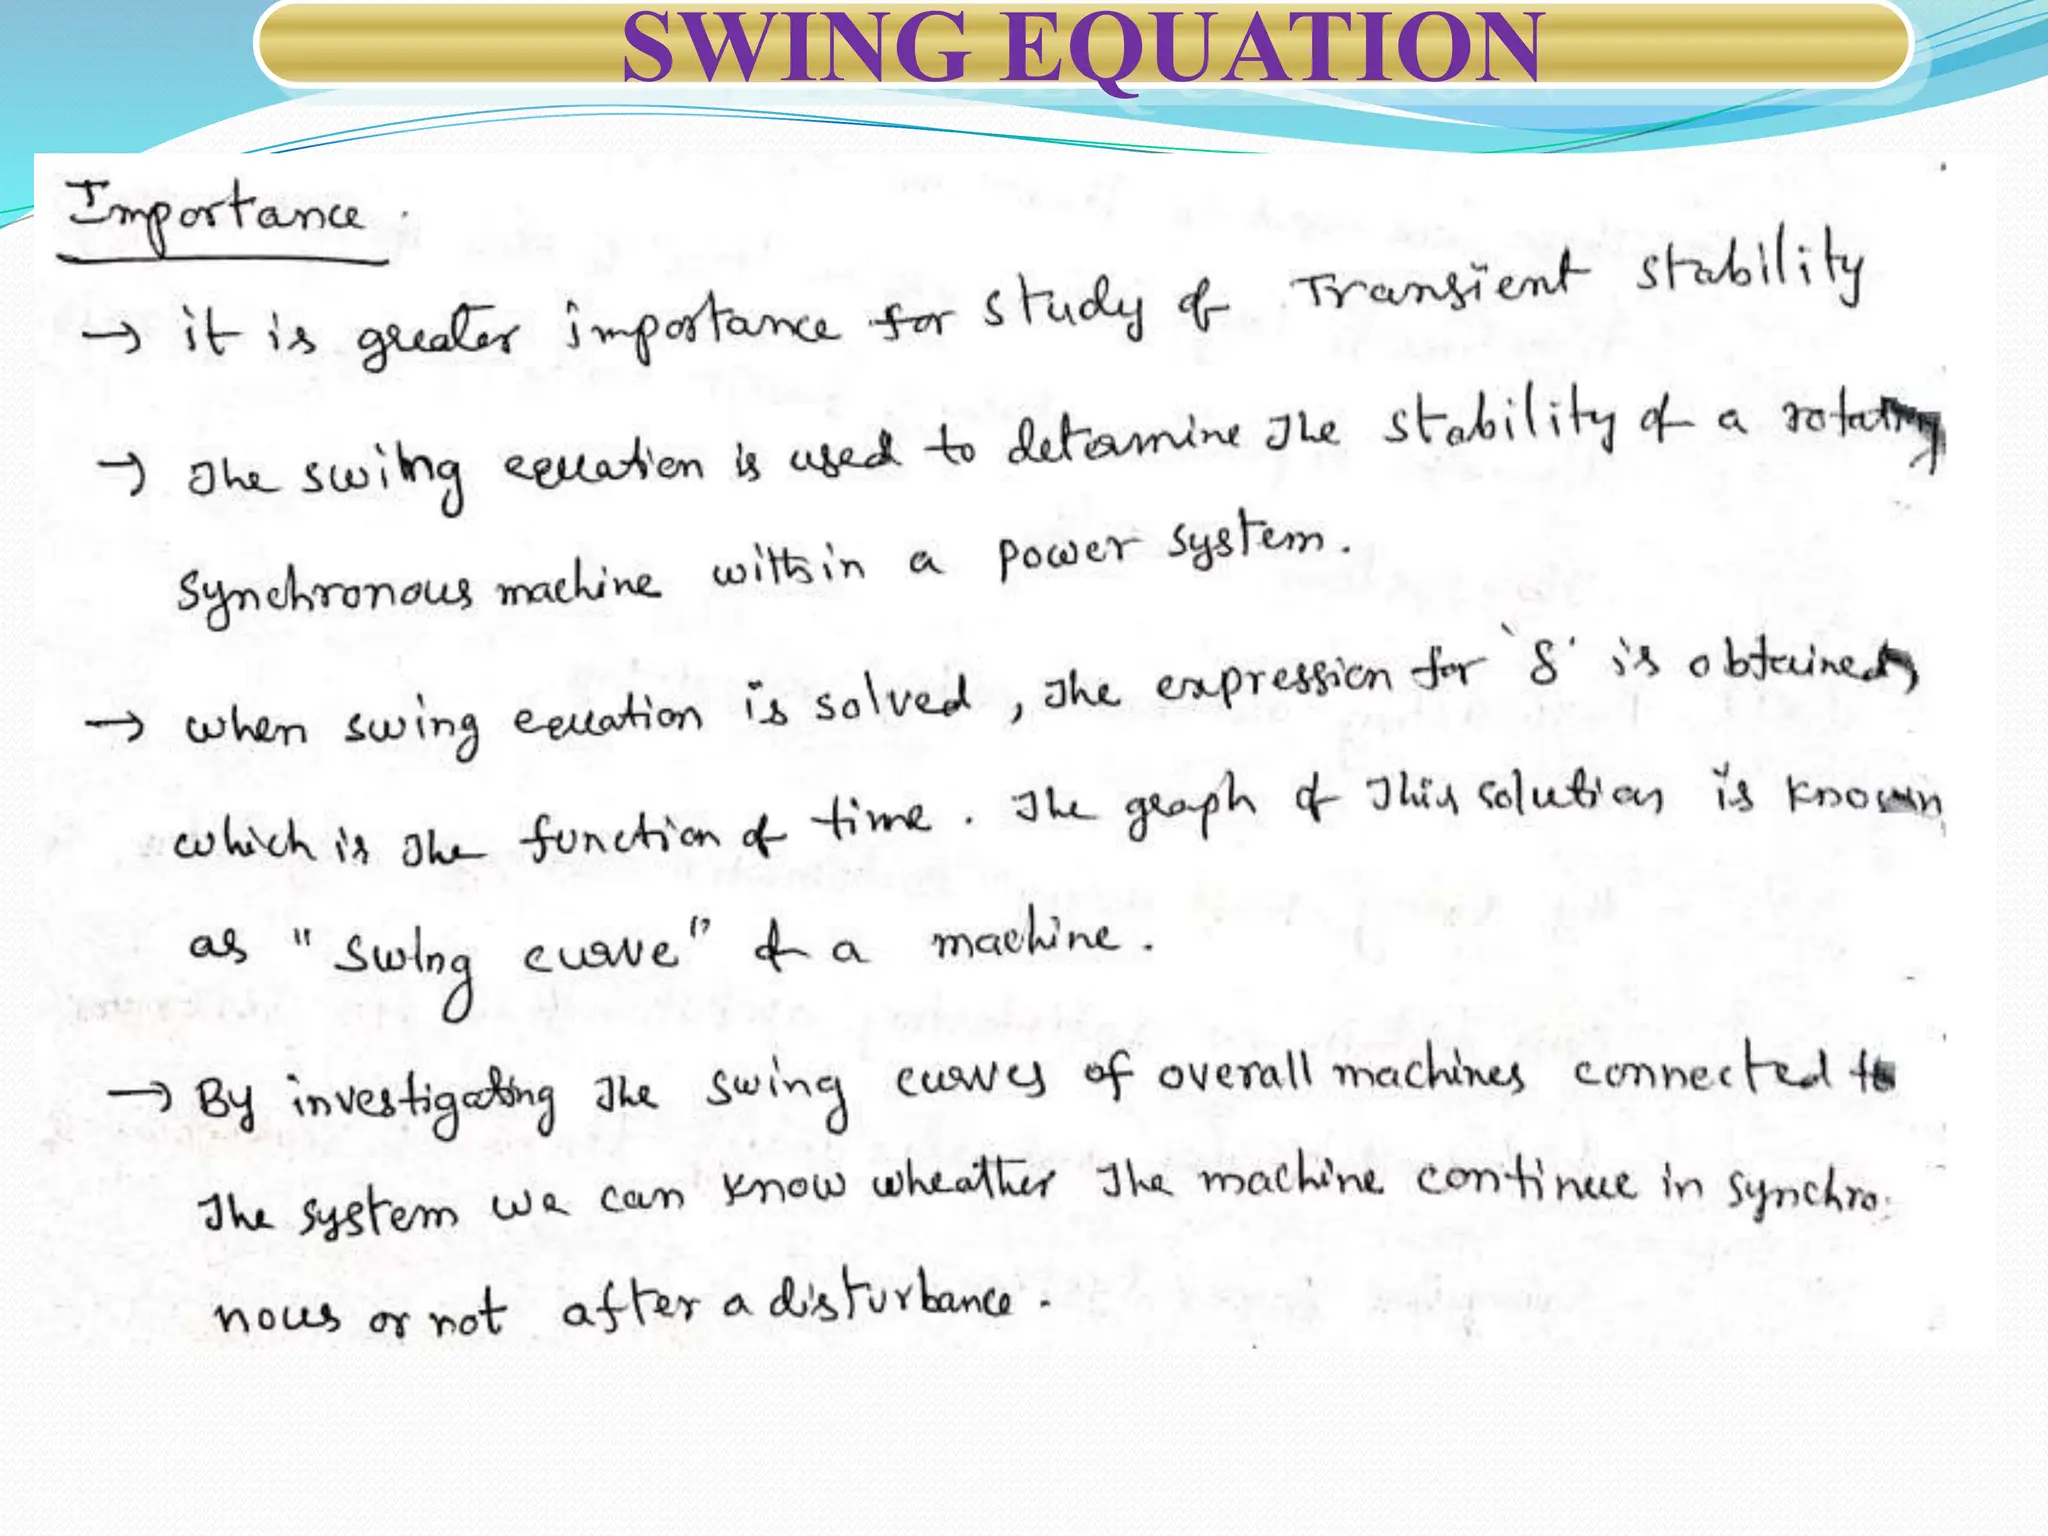 SWING EQUATION
Importance
→ it is greater importance for study of Transient stability
→ The swing equation is used to determine The stability of a rotating
synchronous machine within a power system.
→ when swing equation is solved, The expression for 'δ' is obtained,
which is The function of time. The graph of This solution is known
as "swing curve" of a machine.
→ By investigating The swing curves of overall machines connected to
The system we can know wheather The machine continue in synchro-
nous or not after a disturbance.